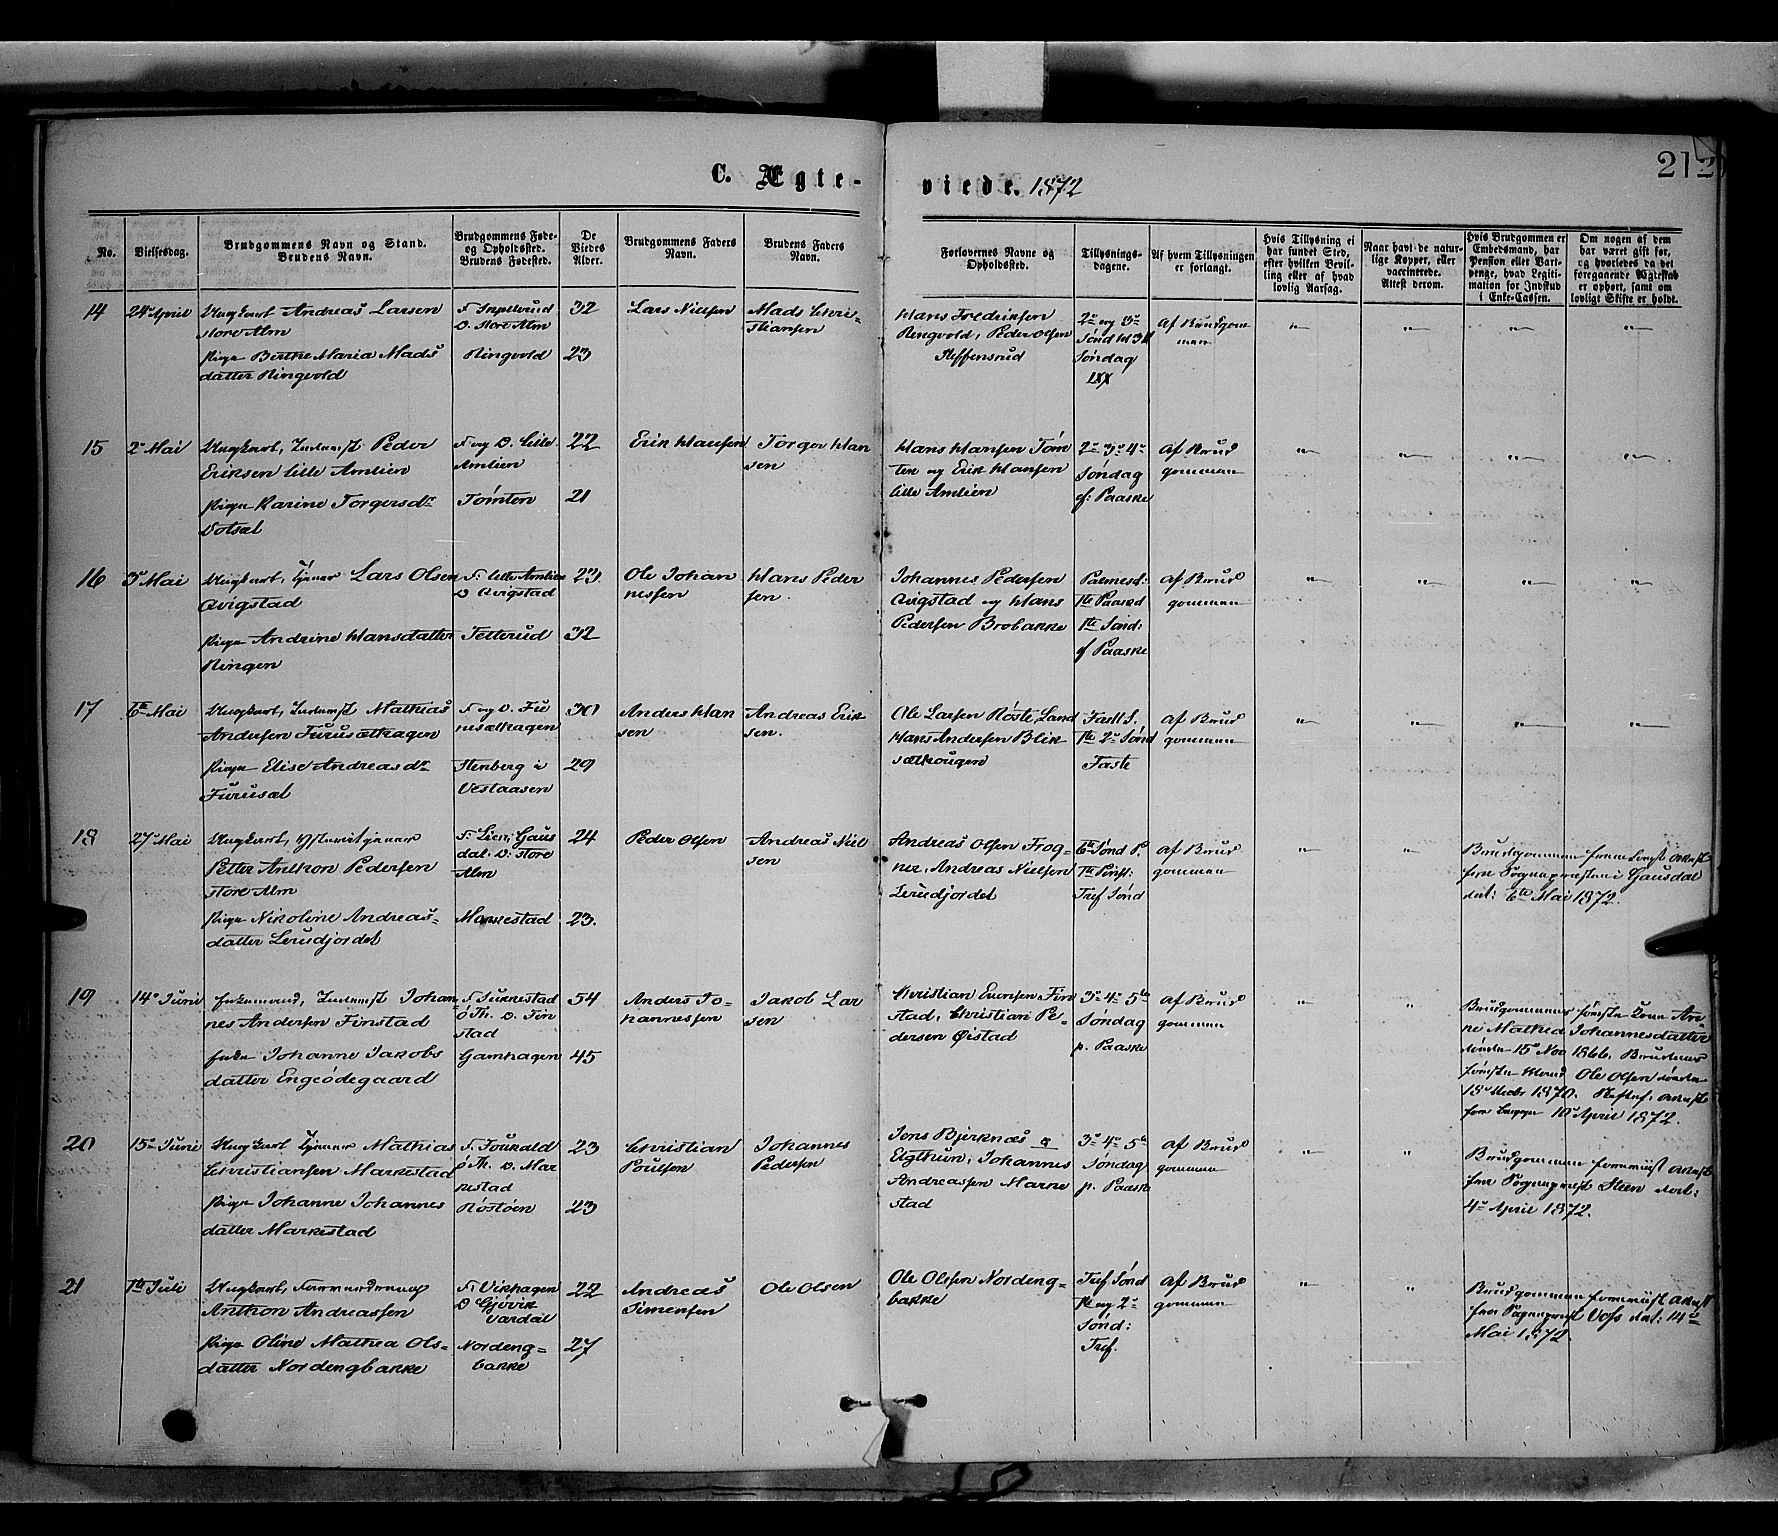 212
C. Ægteviede. 1872
No.
Vielsesdag.
Brudgommens Navn og Stand.
Brudens Navn.
Brudgommens Føde-
og Opholdssted.
Brudens Fødested.
De
Viedes
Alder.
Brudgommens Faders
Navn.
Brudens Faders
Navn.
Forlovernes Navne og
Opholdssted.
Tillysnings-
dagene.
Af hvem Tillysningen
er forlangt.
Hvis Tillysning ei
har fundet Sted,
efter hvilken Bevil-
ling eller af hvad
lovlig Aarsag.
Naar havt de natur-
lige Kopper, eller
vaccinerede.
Attest derom.
Hvis Brudgommen er
Embedsmand, har
Pension eller Vart-
penge, hvad Legiti-
mation for Indskud
i Enke-Cassen.
Om nogen af dem
har været gift før,
og hvorledes da det
foregaaende Ægteskab
er ophørt, samt om
lovligt Skifte er holdt.
14
24 April
Ungkarl Andreas Larsen
store Alm
Pige Berthe Maria Mads
datter Ringvold
O. Store Alm
Ringvold
32
23
Lars Nielsen
Mads Chri-
stiansen
Hans Fredriksen
Ringvold, Peder Olsen
Steffensrud
Søndag
Af Brudgom
men
15
2 Mai
Ungkarl, Inderst Peder
Eriksen lille Amlien
Pige Karine Torgersdr
F og O. Lille
Amlien
Tømten
22
21
Erik Hansen
Torger Han
sen
Hans Hansen Tøm
ten og Erik Hansen
lille Amlien
2 3 4
Søndag
ef: Paaske
Af Brud
gommen
16
3 Mai
Ungkarl, Tjener Lars Olsen
Qvigstad
Pige Andrine Hansdatter
Ringen
F. lille Amlien
O Qvigstad
Tetterud
23
32
Ole Johan
nessen
Hans Peder
sen.
Johannes Pedersen
Qvigstad og Hans
Pedersen Brobakke
Palmesd:
1te Paasked
1te Sønd:
ef Paaske
Af Brud
gommen
17
6te Mai
Ungkarl, Inderst Mathias
Andersen Furusæthagen
Pige Elise Andreasdr
Furusæt
F og O. Fu
rusæthagen
Stenberg i
Vestaasen
30
29
Anders Han
sen
Andreas Erik
sen.
Ole Larsen Røste, Land
Hans Andersen Blik
sæthougen
Fastl S.
1te 2 Sønd
Faste
Af Brud
gommen
18
27 Mai
Ungkarl,
Petter Anthon Pedersen
store Alm
Pige Nikoline Andreas-
datter Lerudjordet
F. Lien, Gaus
dal. O. Store
Alm
Markestad
24
23.
Peder Olsen
Andreas Niel
sen
Andreas Olsen Frog-
ner, Andreas Nielsen
Lerudjordet
6te Sønd P.
1te Pinst:
Tref Sønd
Af Brud
gommen
Brudgommen fremlagt Attest
fra Sognepresten i Gausdal
dat: 6te Mai 1872.
19
14 Juni
Enkemand, Inderst Johan-
nes Andersen Finstad
Enke Johanne Jakobs
datter Engeødegaard
F. Sukkestad
Ø Th. O. Fin
stad
Gamhagen
54
45
Anders Jo-
hannessen
Jakob Lar
sen
Christian Evensen Fin
stad, Christian Pe-
dersen Øistad
3 4 5te
Søndag
p. Paaske
Af Brud
gommen
Brudgommens første Kone An-
ne Mathea Johannesdatter
døde 15 Nov 1866. Brudens
første Mand Ole Olsen døde
1870. Skiftes Attest
10 April 1872.
20
15 Juni
Ungkarl Tjener Mathias
Christiansen Markestad
Pige Johanne Johannes
datter Markestad
Ø Th. O. Mar
kestad
Røstøen
23
23
Christian
Poulsen
Johannes
Pedersen
Jens Bjerknæs
Eigthun, Johannes
Andreassen Marke
stad
3 4 5te
Søndag
p. Paaske
Af Brud
gommen
Brudgommen fremviist Attest
fra Sogneprest Steen dat:
4 April 1872.
21
1te Juli
Ungkarl,
Anthon Andreassen
Pige Oline Mathea Ols-
datter Nordengbakke
F. Vikhagen
O Gjøvik
Vardal
Nordeng-
bakke
22
27
Andreas
Simensen
Ole Olsen
Ole Olssen Nordeng-
bakke
Tref Sønd
1te og 2
Sønd:
Tref.
Af Brud
gommen
Brudgommen fremviist Attest
fra Sogneprest Voss dat: 14
Mai 1872.